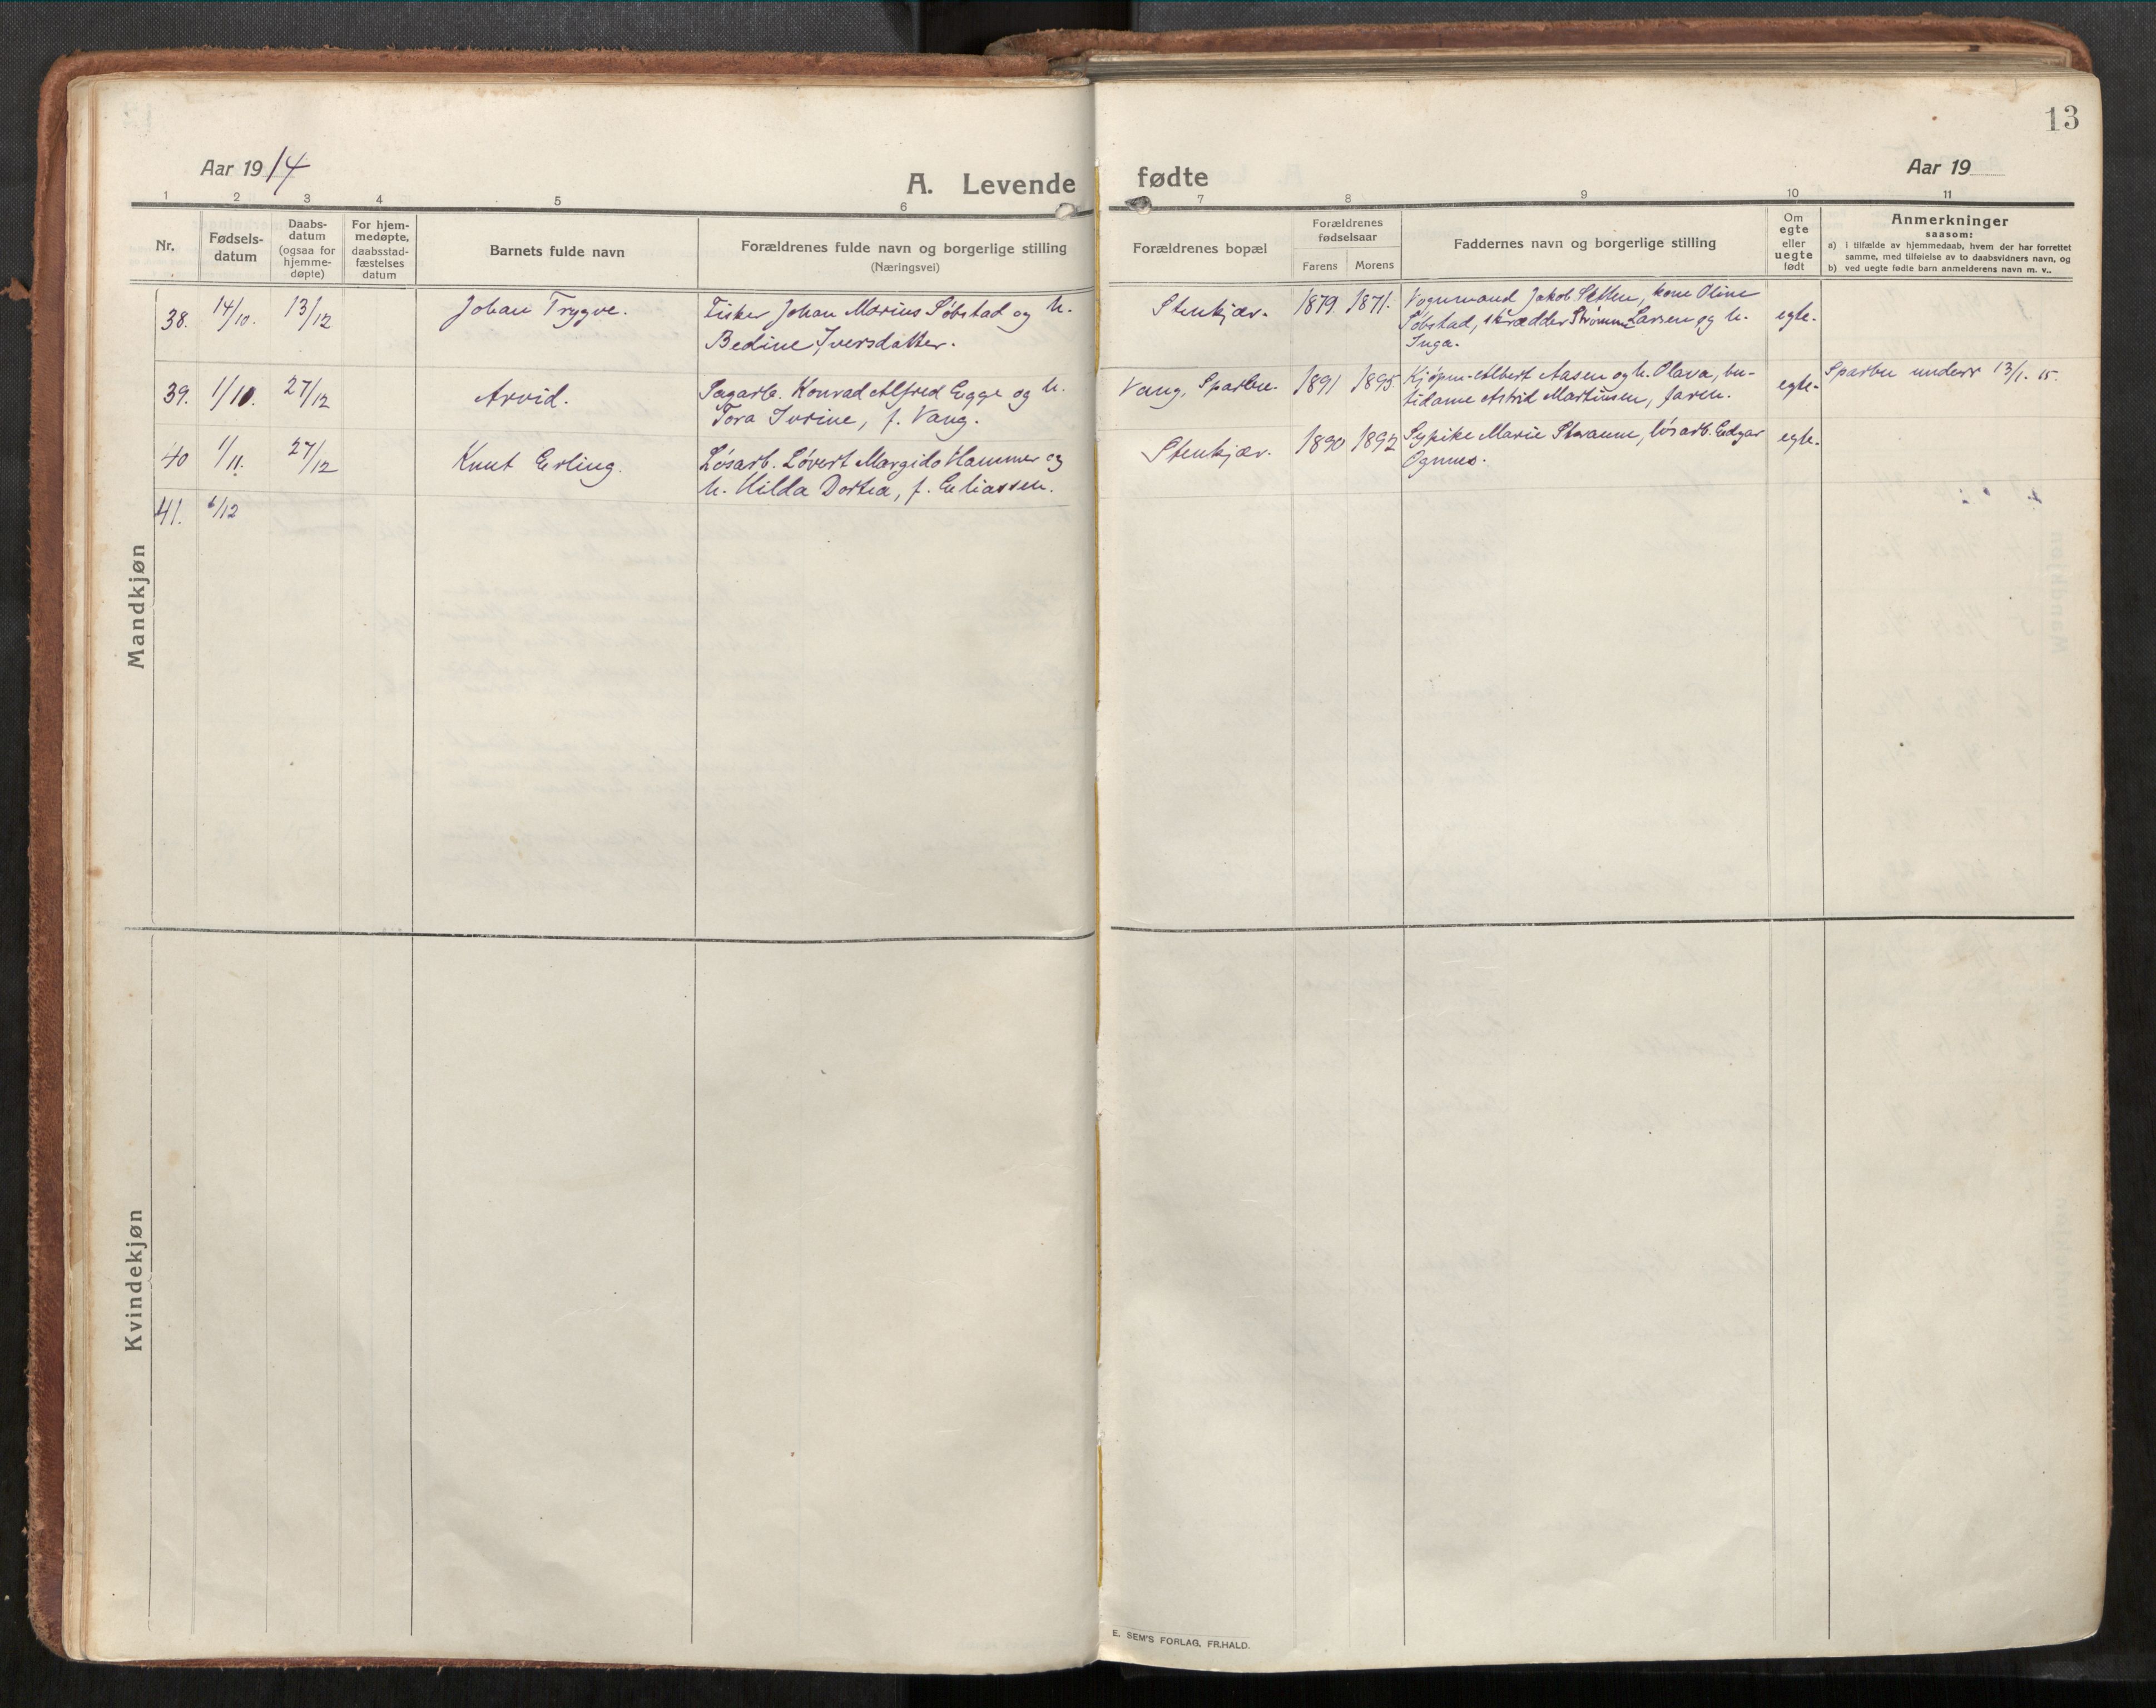 13
Aar 1914
A. Levende fødte
Aar 19
1 2 3 4 5 6 7 8 9 10 11
Nr.
Fødsels-
datum
Daabs-
datum
(ogsaa for
hjemme-
døpte)
For hjem-
medøpte,
daabsstad-
fæstelses
datum
Barnets fulde navn
Forældrenes fulde navn og borgerlige stilling
(Næringsvei)
Forældrenes bopæl
Forældrenes
fødselsaar
Farens Morens
Faddernes navn og borgerlige stilling
Om
egte
eller
uegte
født
Anmerkninger
saasom:
a) i tilfælde av hjemmedaab, hvem der har forrettet
samme, med tilføielse av to daabsvidners navn, og
b) ved uegte fødte barn anmelderens navn m. v..
Mandkjøn
38. 14/10. 13/12 Johan Trygve. Fisker Johan Marius Søbstad og h.
Bedine Iversdatter.
Stenkjær. 1879. 1871. Vognmand Jakob Setten, kone Oline
Søbstad, skrædder Strømme Larsen og h.
Inga.
egte.
39. 1/10. 27/12 Arvid. Sagarb. Konrad Alfred Egge og h.
Tora Ivrine, f. Vang.
Vang, Sparbu. 1891 1895 Kjøpm. Albert Aasen og h. Olava, bu-
tidame Astrid Martinsen, faren.
egte.
Sparbu underr 13/1. 15.
40 1/11. 27/12 Knut Erling. Løsarb. Løvert Margido Hammer og
h. Hilda Dortea, f. Eliassen.
Stenkjær. 1890 1892 Sypike Marie Stavaune, løsarb. Edgar
Ognnes.
egte.
41. 6/12
Kvindekjøn
E. SEM'S FORLAG, FR.HALD.